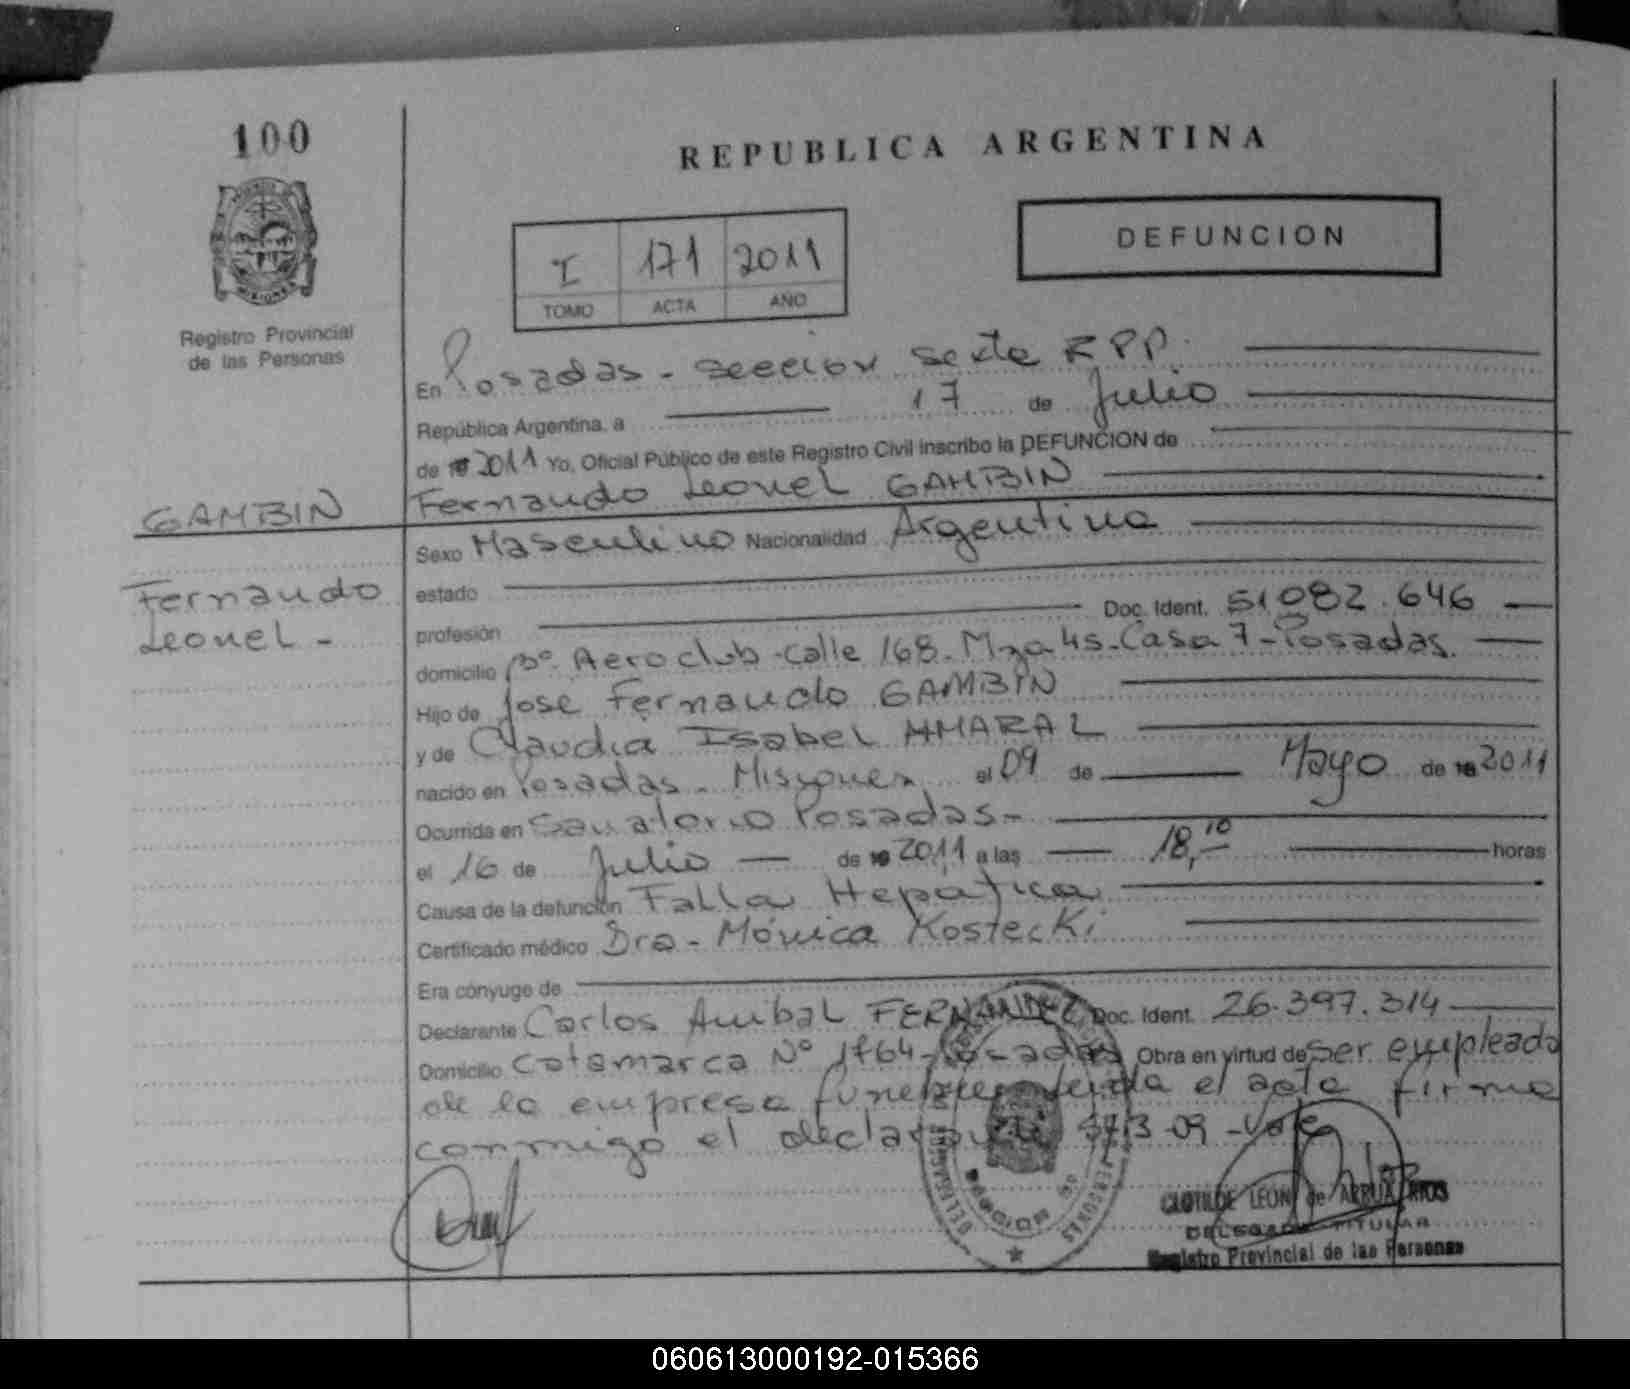 100
REPUBLICA ARGENTINA
DEFUNCION
I 171 2011
TOMO ACTA AÑO
MISIONES
Registro Provincial
de las Personas
En Posadas - sección sexta RPP.
República Argentina, a 17 de Julio
de 19 2011 Yo, Oficial Público de este Registro Civil inscribo la DEFUNCION de
Fernando Leonel GAMBIN
GAMBIN
Fernando
Leonel -
Sexo Masculino Nacionalidad Argentina
estado
profesión Doc. Ident. 51082.646
domicilio Bº. Aeroclub - calle 168 - Mza 45 - Casa 7 - Posadas.
Hijo de José Fernando GAMBIN
y de Claudia Isabel AMARAL
nacido en Posadas - Misiones el 09 de Mayo de 19 2011
Ocurrida en Sanatorio Posadas -
el 16 de Julio de 19 2011 a las 18,10 horas
Causa de la defunción Falla Hepática
Certificado médico Dra - Mónica Kostecki
Era cónyuge de
Declarante Carlos Anibal FERNANDEZ Doc. Ident. 26.397.314
Domicilio Catamarca Nº 1764 - Posadas Obra en virtud de ser empleado
de la empresa funebre el acta firma
conmigo el declarante 09 - Vale
SECCION 6º
CLOTILDE LEON de ARRUA RIOS
DELEGADA TITULAR
Registro Provincial de las Personas
060613000192-015366